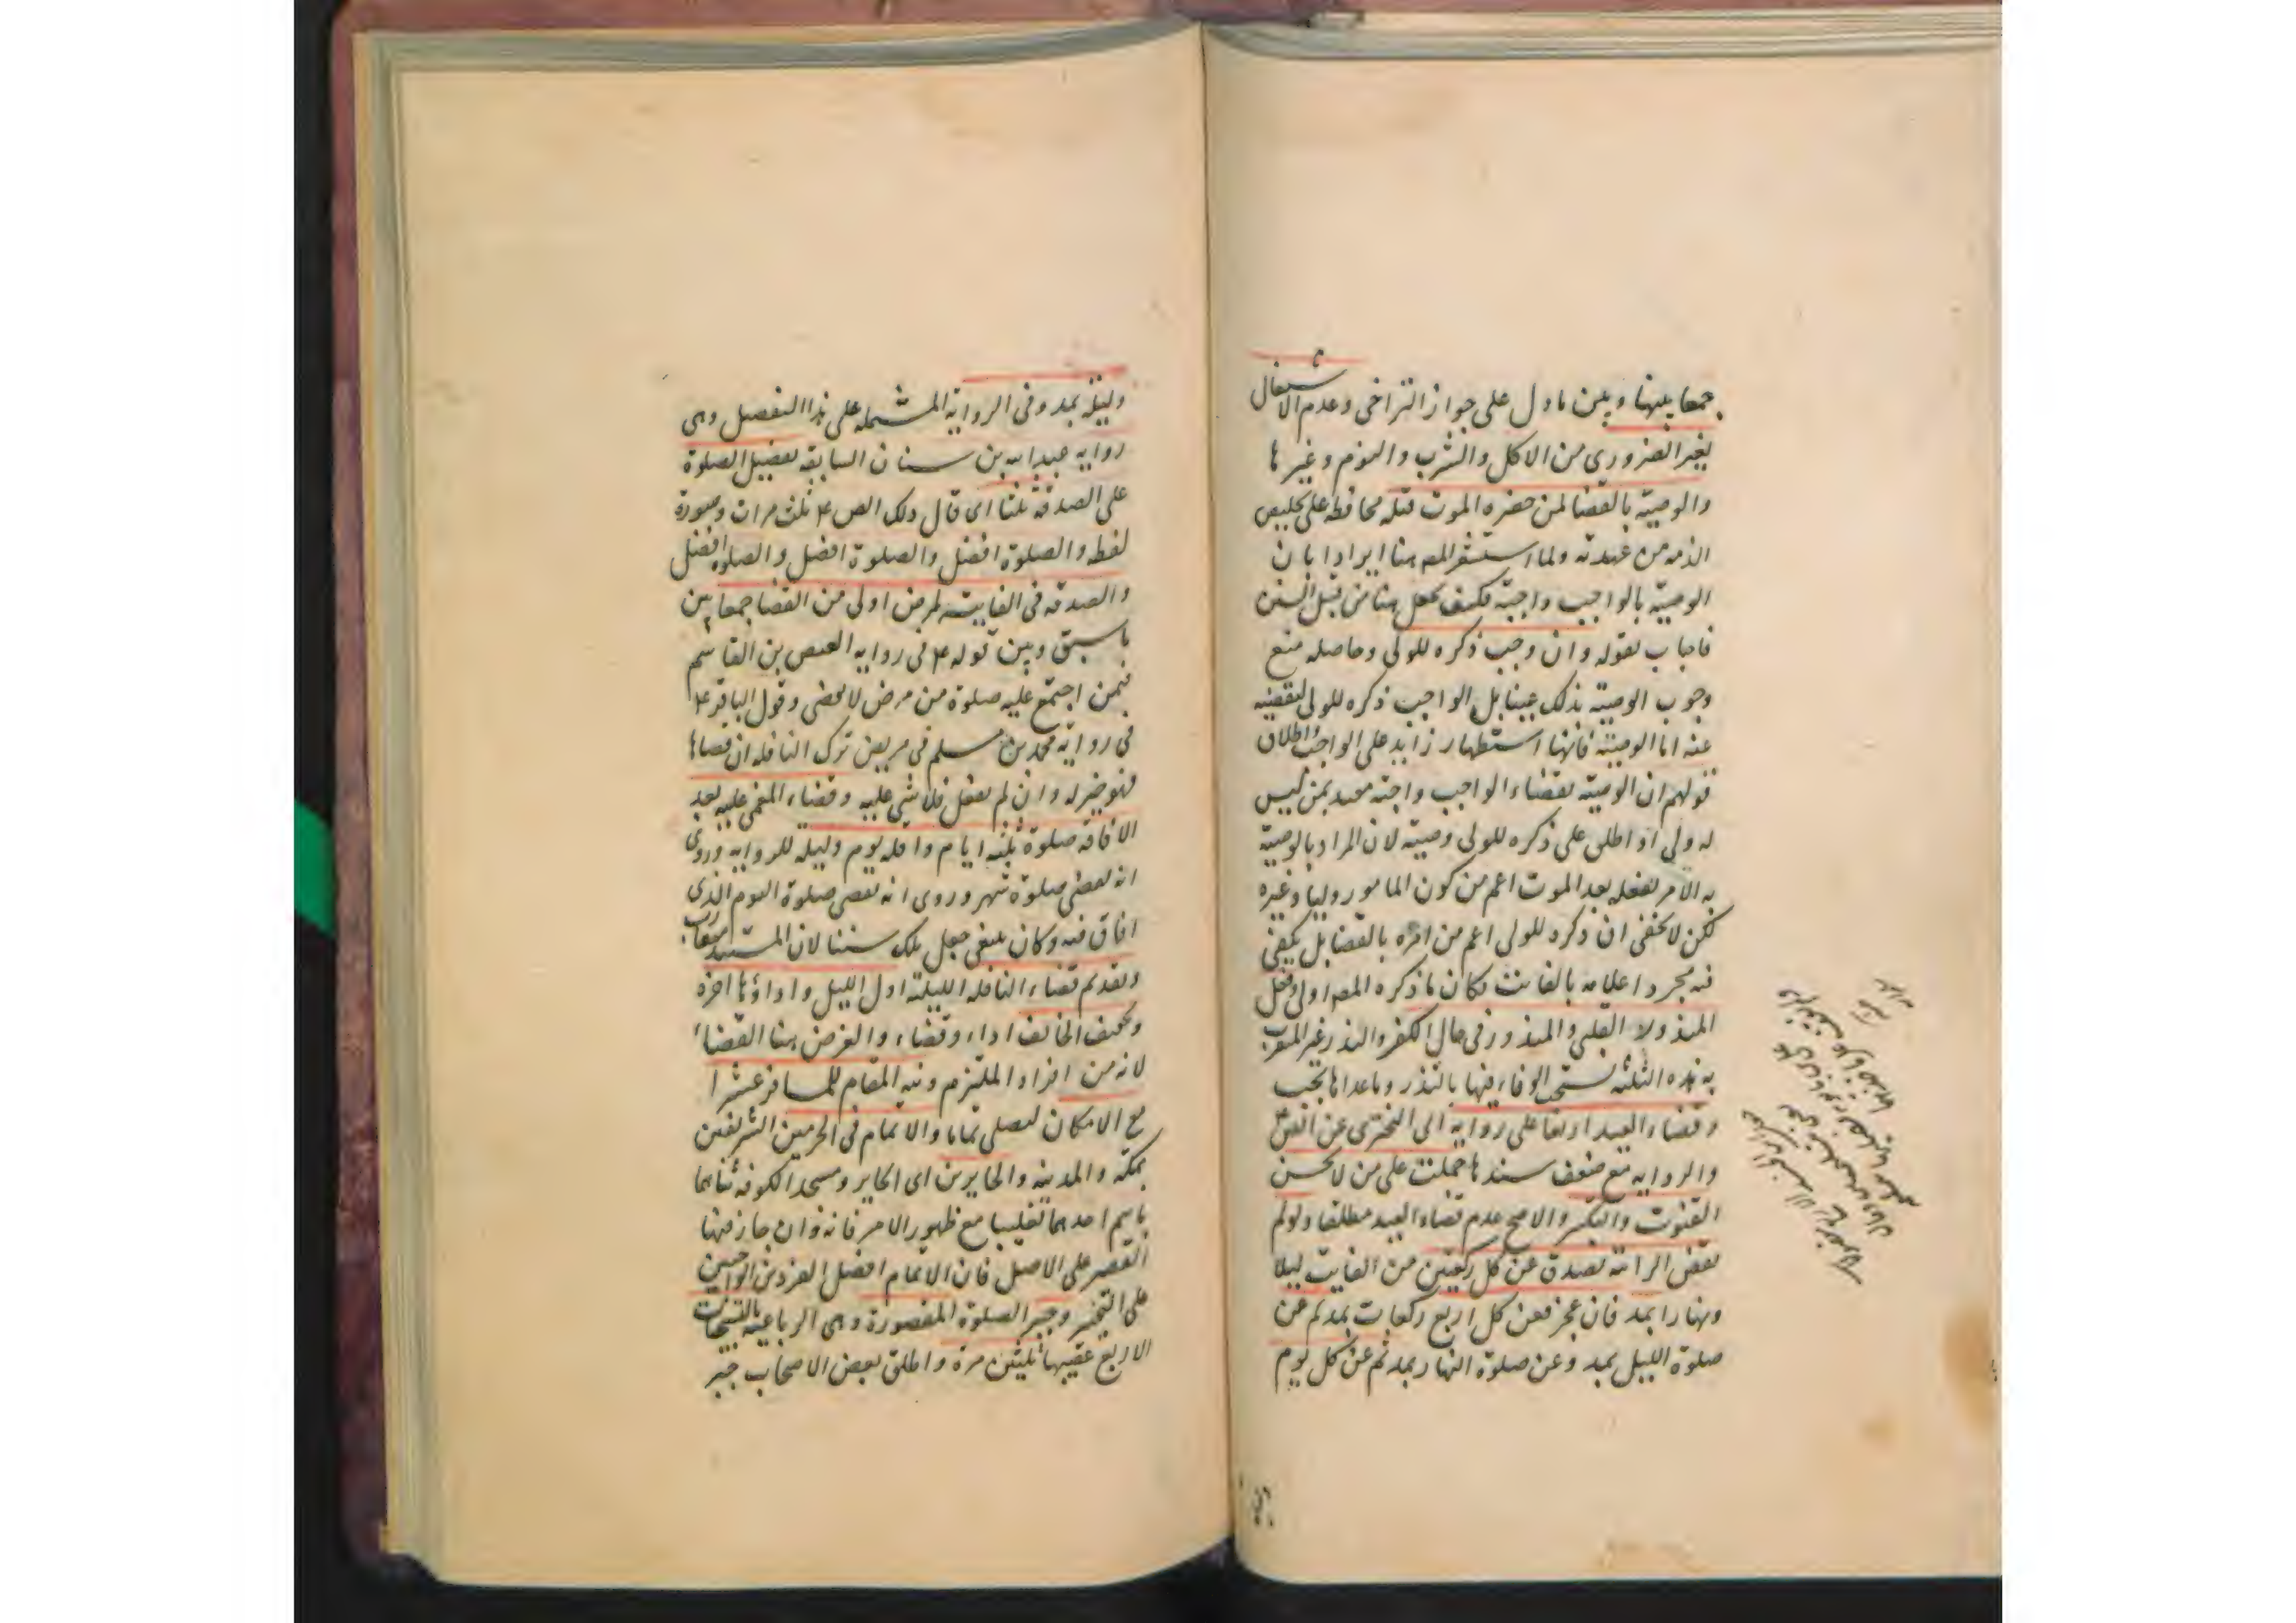 جمعا بينها و بين ما دل على جواز التراخى وعدم الاشتغال
بغير الضرورى من الاكل والشرب والنوم وغيرها
والوصية بالقضا لمن حضره الموت قبله محافظة على تخليص
الذمة من عهدته ولما استشعر المص هنا ايرادا بان
الوصية بالواجب واجبة فكيف تجعل هنا من قبل السنن
فاجاب بقوله وان وجب ذكره للولى وحاصله منع
وجوب الوصية بذلك عينا بل الواجب ذكره للولى ليقضيه
عنه اما الوصية فانها استظهار زايد على الواجب واطلاق
قولهم ان الوصية بقضاء الواجب واجبة مقيد بمن ليس
له ولى او اطلق على ذكره للولى وصية لان المراد بالوصية
به الامر بفعله بعد الموت اعم من كون المامور وليا وغيره
لكن لا يخفى ان ذكره للولى اعم من امره بالقضا بل يكفى
فيه مجرد اعلامه بالفائت فكان ما ذكره المص اولى وفعل
المنذور لا القلبى والمنذور فى حال الكفر والنذر غير المقرب
به هذه الثلثة يستحب الوفاء فيها بالنذر وما عداها يجب
وقضاء العيد اربعا على رواية ابى البخترى عن الص ع
والرواية مع ضعف سندها حملت على من لا يحسن
القنوت والتكبير والاصح عدم قضاء العيد مطلقا ولو لم
يقض الراتبة تصدق عن كل ركعتين من الفايت ليلا
ونهارا بمد فان عجز فعن كل اربع ركعات بمد ثم عن
صلوة الليل بمد وعن صلوة النهار بمد ثم عن كل يوم
وليلة بمد وفى الرواية المشتملة على هذا التفصيل وهى
رواية عبد الله بن سنان السابقة تفضيل الصلوة
على الصدقة ثلثا اى قال ذلك الص ع ثلث مرات وصورة
لفظه والصلوة افضل والصلوة افضل والصلوة افضل
والصدقة فى الفايتة لمرض اولى من القضا جمعا بين
ما سبق وبين قوله ع فى رواية العيص بن القاسم
فيمن اجتمع عليه صلوة من مرض لا يقضى وقول الباقر ع
فى رواية محمد بن مسلم فى مريض ترك النافلة ان قضاها
فهو خير له وان لم يفعل فلا شى عليه وقضاء المغمى عليه بعد
الافاقة صلوة ثلثة ايام واقله يوم وليلة للرواية وروى
انه يقضى صلوة شهر وروى انه يقضى صلوة اليوم الذى
افاق فيه وكان ينبغى جعل تلك سننا لان المستند متقارب
وتقديم قضاء النافلة الليلية اول الليل واداؤها اخره
وتخفيف الخائف اداء وقضاء والغرض هنا القضاء
لانه من افراد الملتزم ونية المقام للمسافر عشرا
مع الامكان ليصلى تماما والاتمام فى الحرمين الشريفين
بمكة والمدينة والحايرين اى الحاير ومسجد الكوفة ثناهما
باسم احدهما تغليبا مع ظهور الامر فانه وان جاز فيها
القصر على الاصل فان الاتمام افضل الفردين الواجبين
على التخيير وجبر الصلوة المقصورة وهى الرباعية بالتسبيحات
الاربع عقيبها ثلثين مرة واطلق بعض الاصحاب جبر